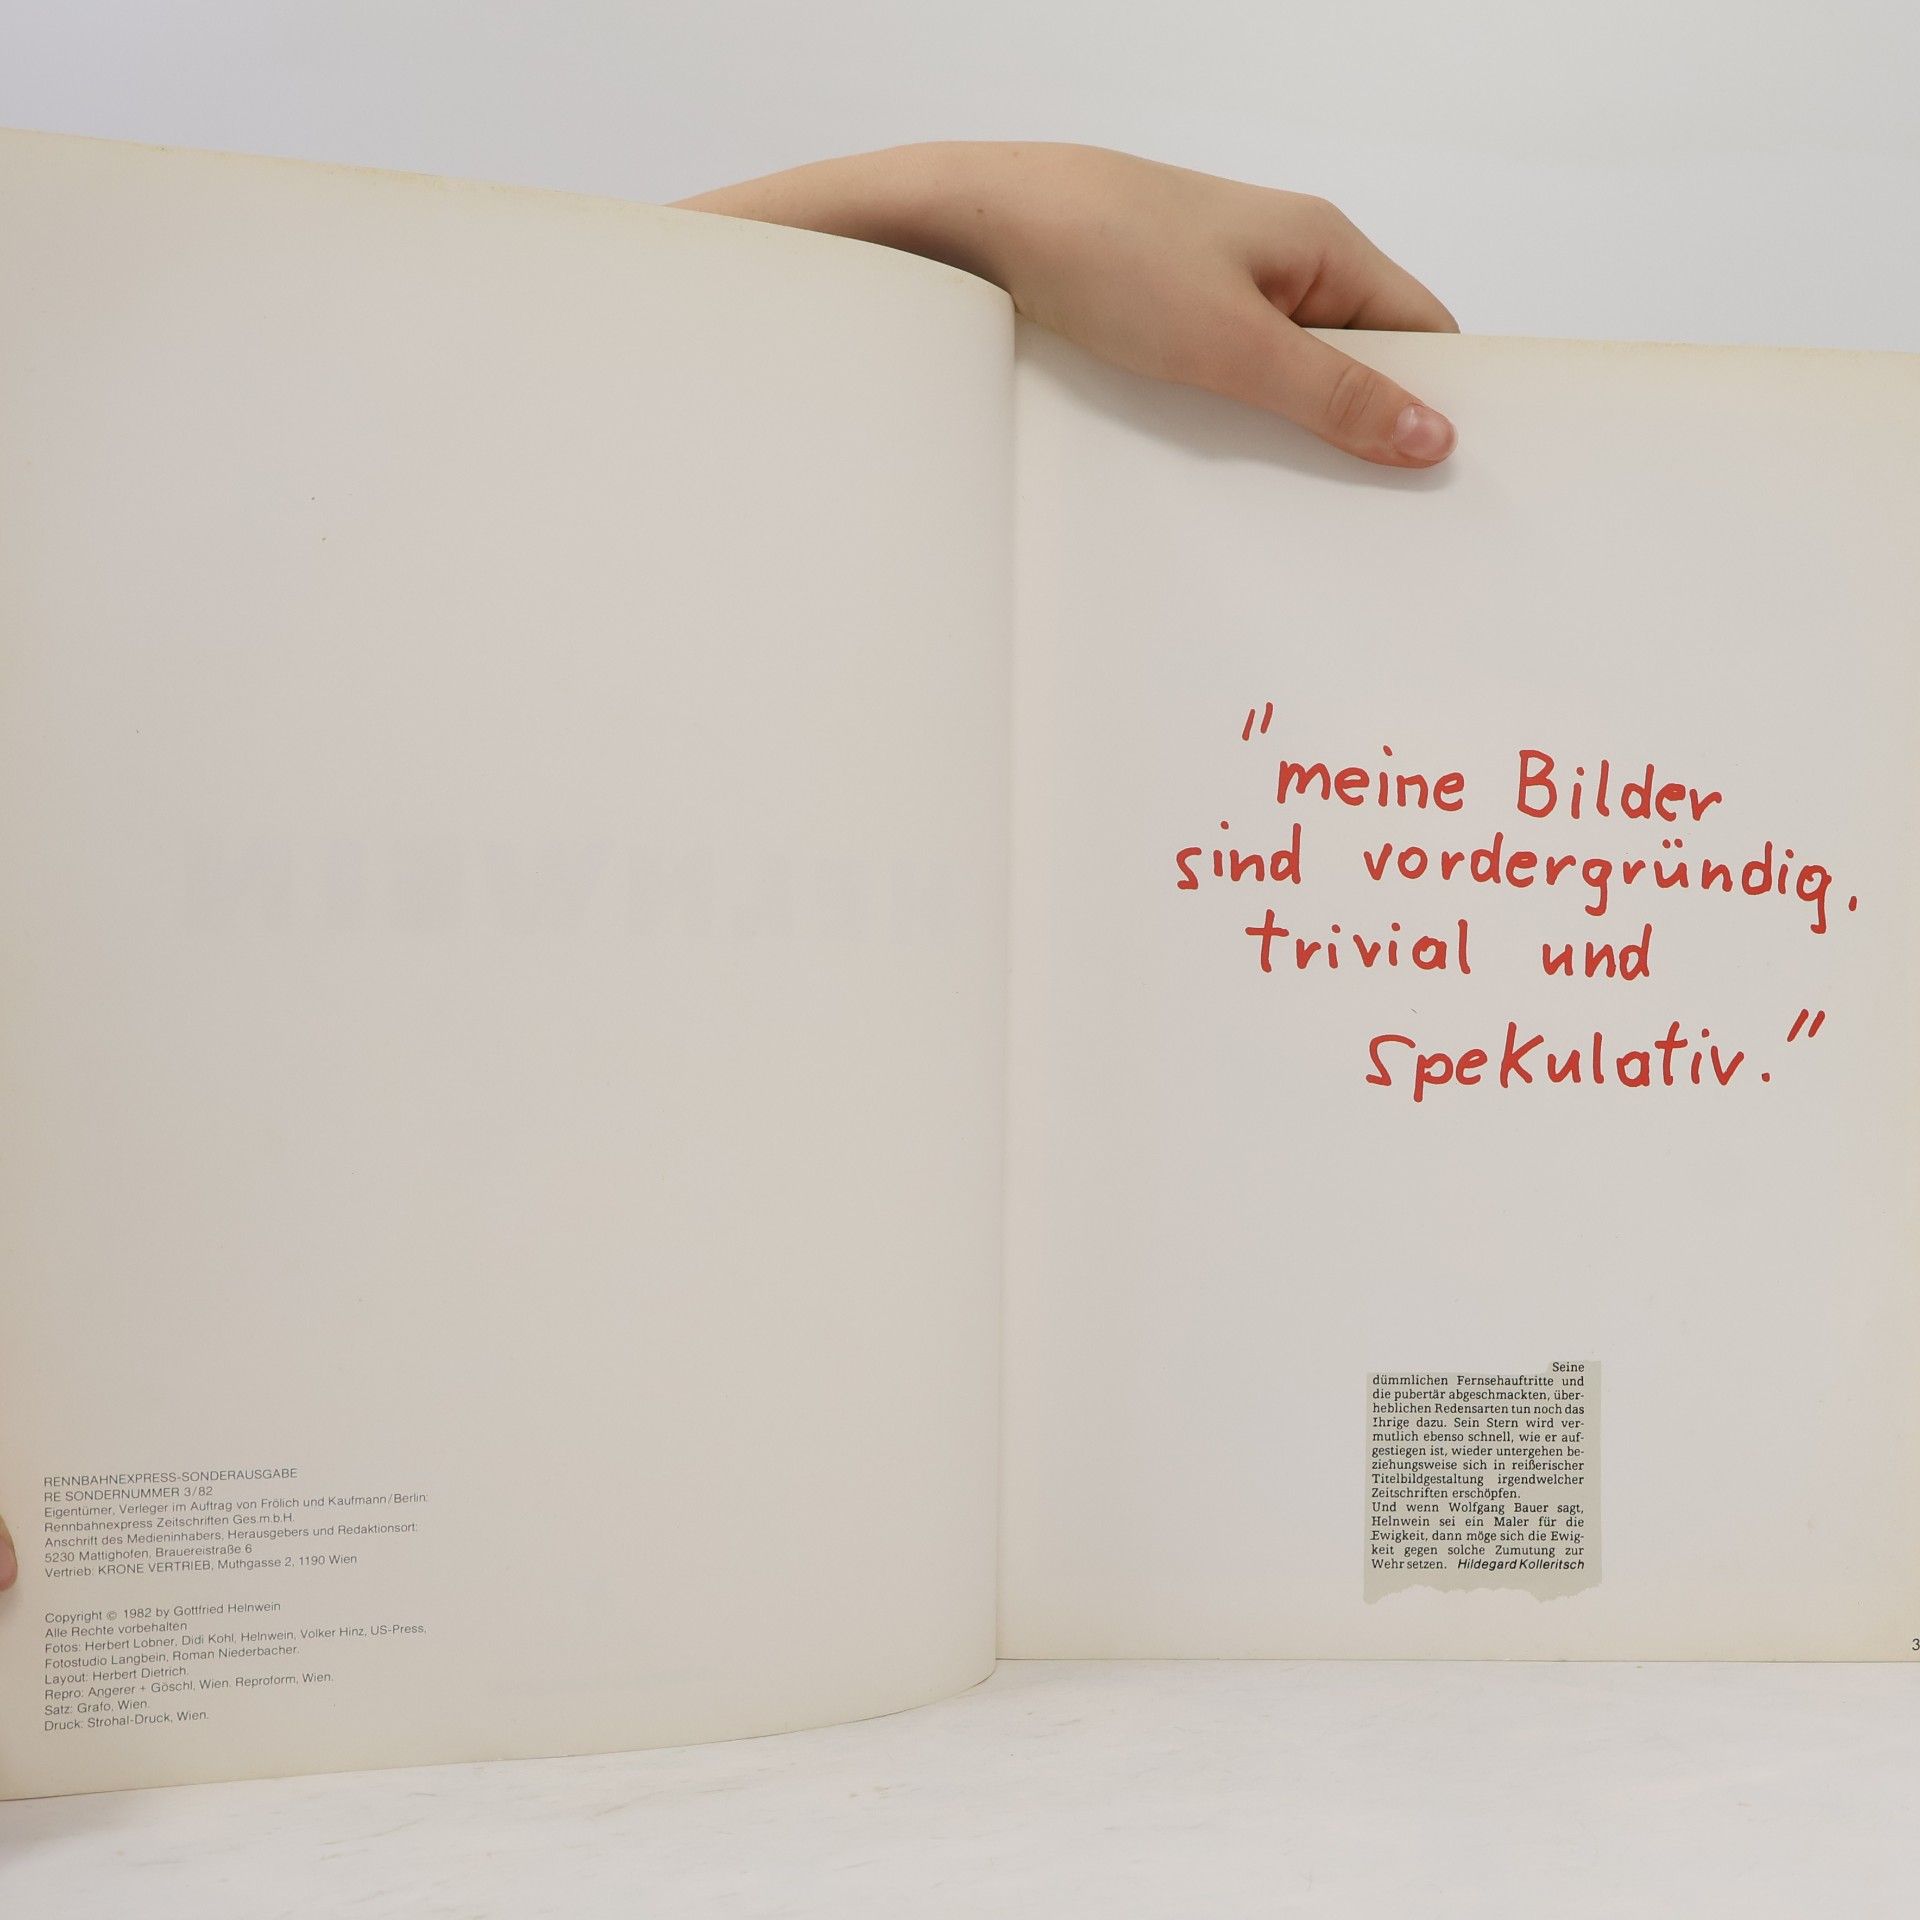 RENNBAHNEXPRESS-SONDERAUSGABE
RE SONDERNUMMER 3/82
Eigentümer, Verleger im Auftrag von Frölich und Kaufmann/Berlin:
Rennbahnexpress Zeitschriften Ges.m.b.H.
Anschrift des Medieninhabers, Herausgebers und Redaktionsort:
5230 Mattighofen, Brauereistraße 6
Vertrieb: KRONE VERTRIEB, Muthgasse 2, 1190 Wien
Copyright © 1982 by Gottfried Helnwein
Alle Rechte vorbehalten
Fotos: Herbert Lobner, Didi Kohl, Helnwein, Volker Hinz, US-Press,
Fotostudio Langbein, Roman Niederbacher.
Layout: Herbert Dietrich.
Repro: Angerer + Göschl, Wien. Reproform, Wien.
Satz: Grafo, Wien.
Druck: Strohal-Druck, Wien.
"meine Bilder
sind vordergründig,
trivial und
spekulativ."
Seine
dümmlichen Fernsehauftritte und
die pubertär abgeschmackten, über-
heblichen Redensarten tun noch das
Ihrige dazu. Sein Stern wird ver-
mutlich ebenso schnell, wie er auf-
gestiegen ist, wieder untergehen be-
ziehungsweise sich in reißerischer
Titelbildgestaltung irgendwelcher
Zeitschriften erschöpfen.
Und wenn Wolfgang Bauer sagt,
Helnwein sei ein Maler für die
Ewigkeit, dann möge sich die Ewig-
keit gegen solche Zumutung zur
Wehr setzen. Hildegard Kolleritsch
3